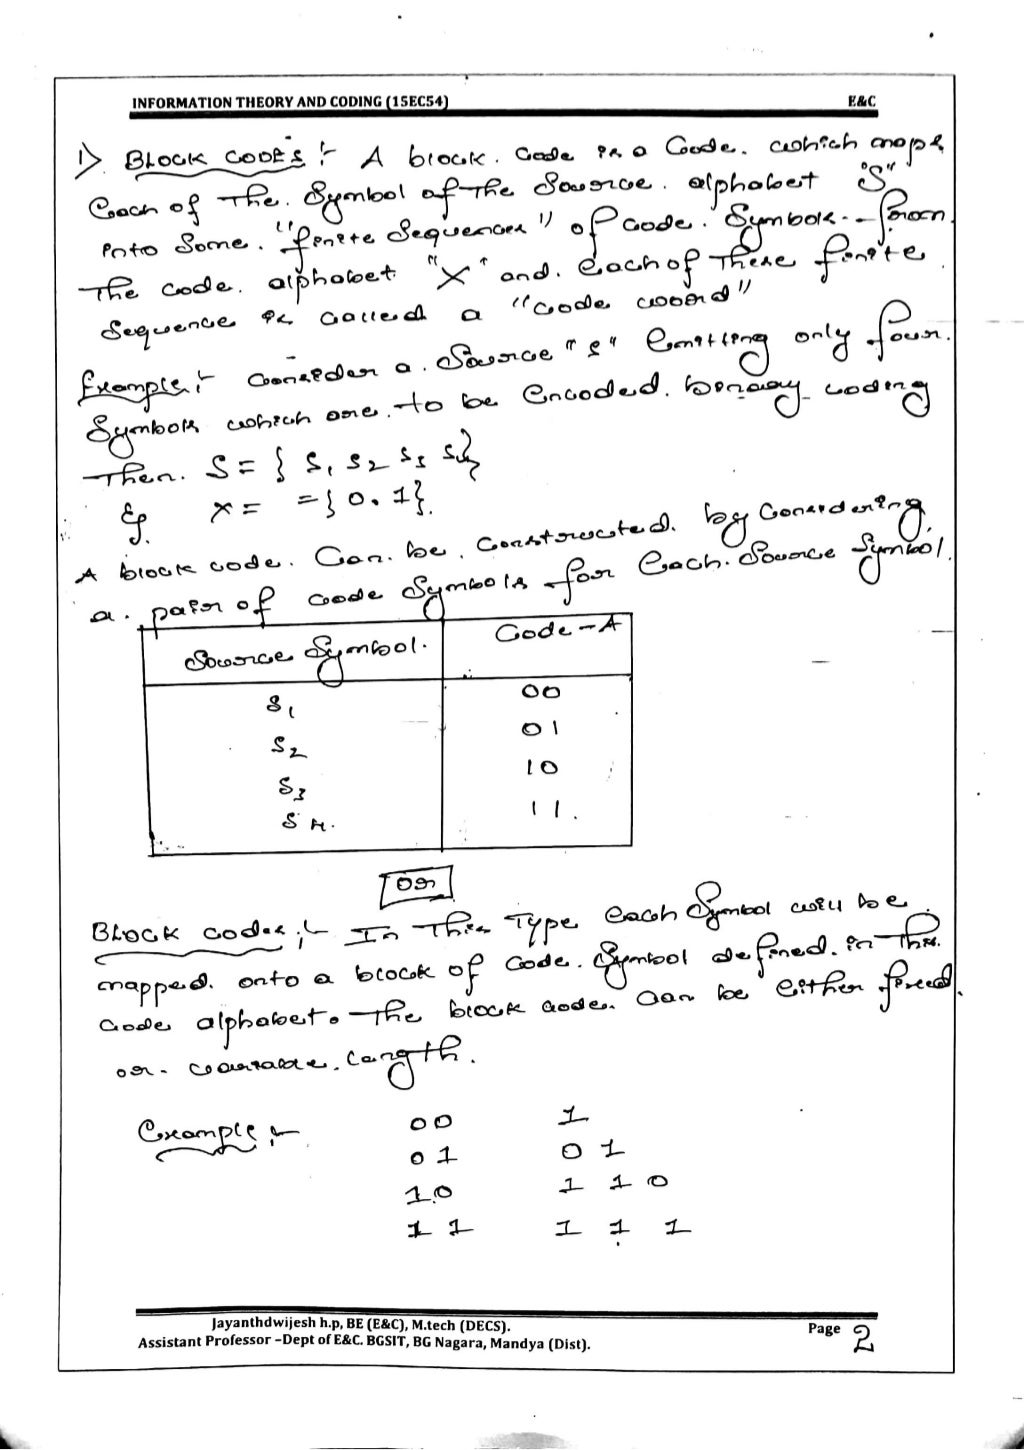 INFORMATION THEORY AND CODING (15EC54) E&C
1) BLOCK CODES :- A block. Code is a Code. which maps
Each of The. Symbol of The Source. alphabet "S"
into Some. "finite Sequences" of code. Symbols -- from
The code. alphabet "X" and. Each of These finite
Sequence is called a "code word"
Example :- Consider a. Source "S" Emitting only four.
Symbols which are. to be Encoded. binary coding
Then. S = { S1 S2 S3 S4}
& X = = { 0. 1}.
A block code. Can. be. Constructed. by Considering
a. pair of code Symbols for Each. Source Symbol.
Source Symbol. Code - A
S1 00
S2 01
S3 10
S4. 11.
or
BLOCK codes :- In This Type each Symbol will be
mapped. onto a block of code. Symbol defined. in The.
code alphabet. The block codes. Can be Either fixed.
or - variable. Length.
Example :- 00 1
01 0 1
1.0 1 1 0
1 1 1 1 1
Jayanthdwijesh h.p, BE (E&C), M.tech (DECS).
Assistant Professor –Dept of E&C. BGSIT, BG Nagara, Mandya (Dist).
Page 2